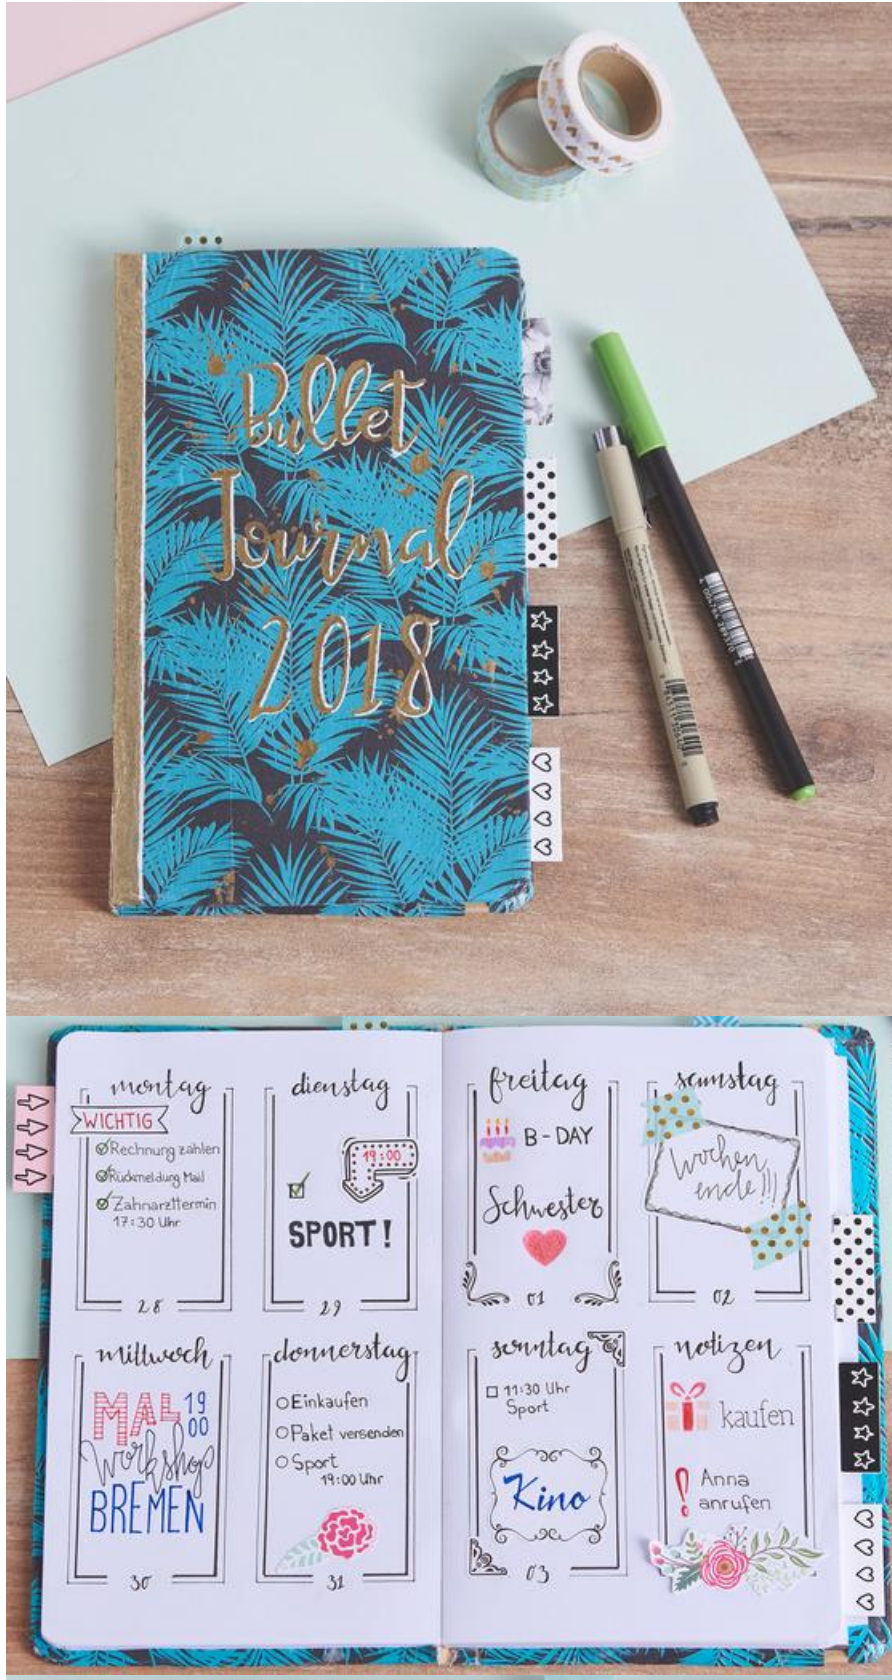 Bullet
Journal
2018
montag
WICHTIG
Rechnung zahlen
Rückmeldung Mail
Zahnarzttermin
17:30 Uhr
28
dienstag
19:00
SPORT!
29
mittwoch
MAL 19
00
Workshop
BREMEN
30
donnerstag
Einkaufen
Paket versenden
Sport
19:00 Uhr
31
freitag
B-DAY
Schwester
01
samstag
Wochen
ende!!!
02
sonntag
11:30 Uhr
Sport
Kino
03
notizen
kaufen
! Anna
anrufen